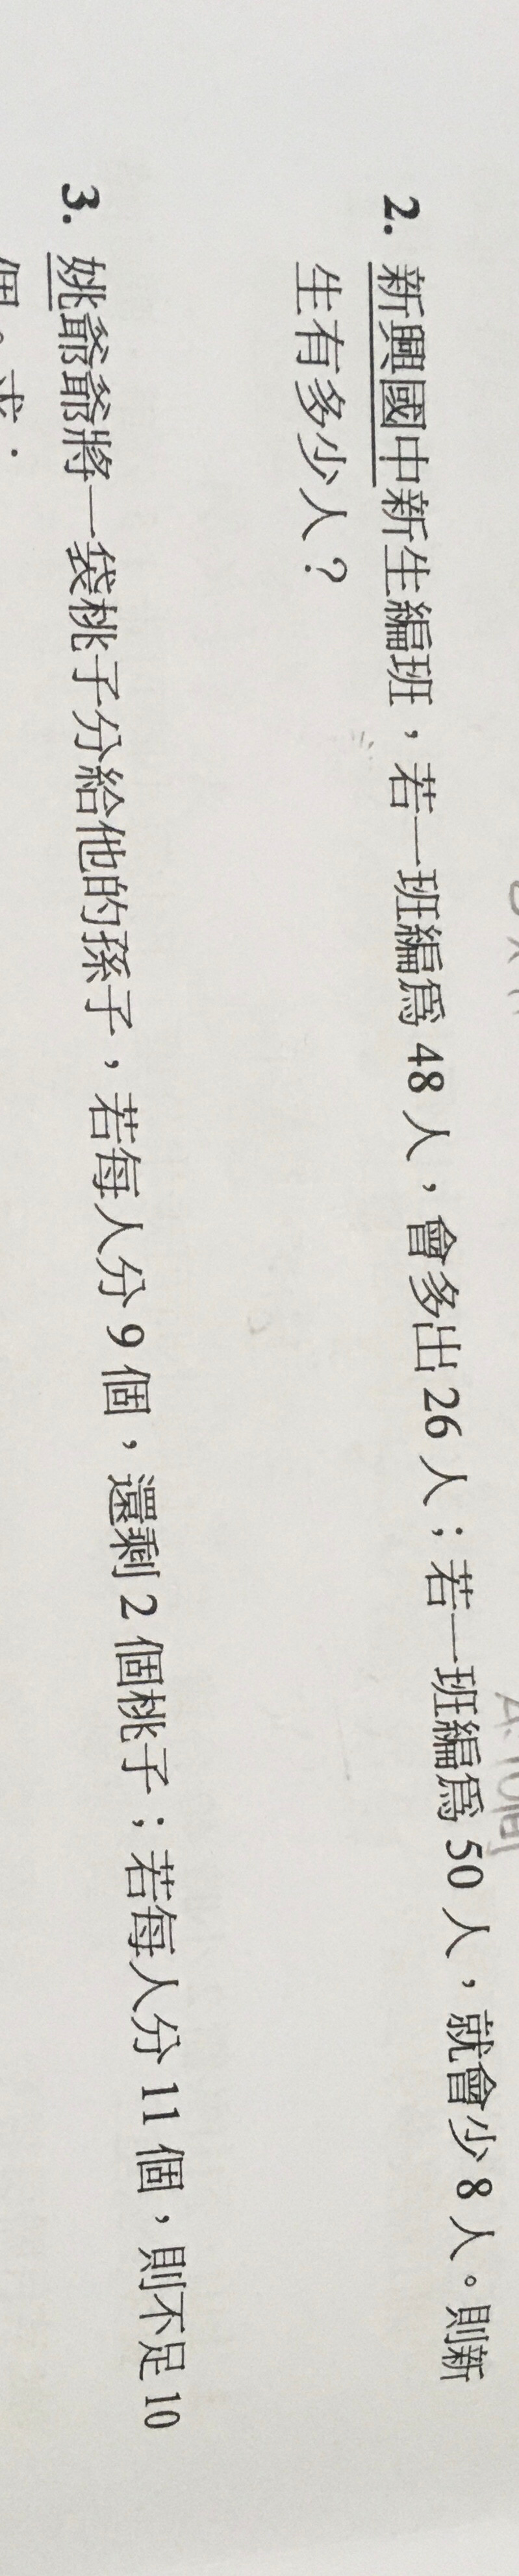 2. 新興國中新生編班，若一班編爲 48 人，會多出 26 人；若一班編爲 50 人，就會少 8 人。則新
生有多少人？
3. 姚爺爺將一袋桃子分給他的孫子，若每人分 9 個，還剩 2 個桃子；若每人分 11 個，則不足 10
個。求：